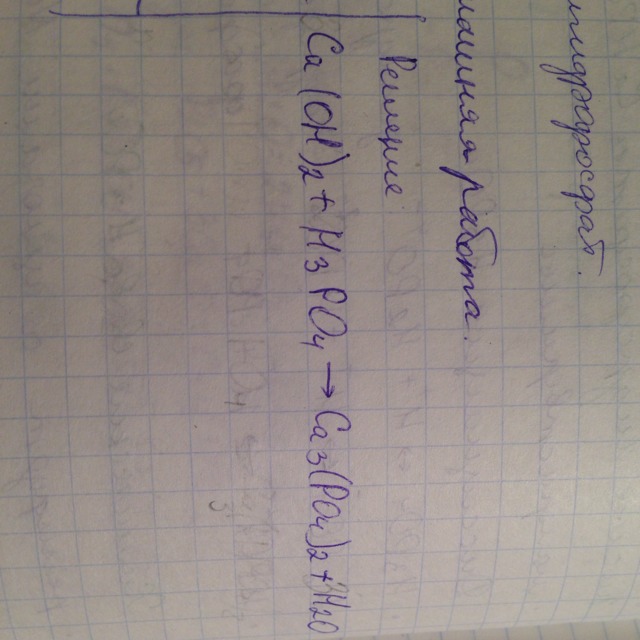 гидрофосфат.
машняя работа.
Решение
Ca(OH)2 + H3PO4 → Ca3(PO4)2 + H2O